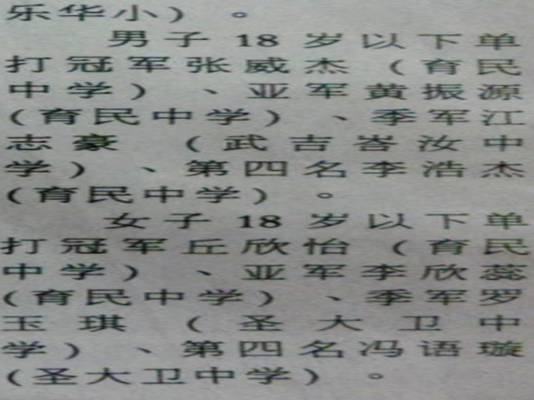 乐华小）。
男子18岁以下单
打冠军张威杰（育民
中学）、亚军黄振源
（育民中学）、季军江
志豪（武吉岑汝中
学）、第四名李浩杰
（育民中学）。
女子18岁以下单
打冠军丘欣怡（育民
中学）、亚军李欣蕊
（育民中学）、季军罗
玉琪（圣大卫中
学）、第四名冯语璇
（圣大卫中学）。